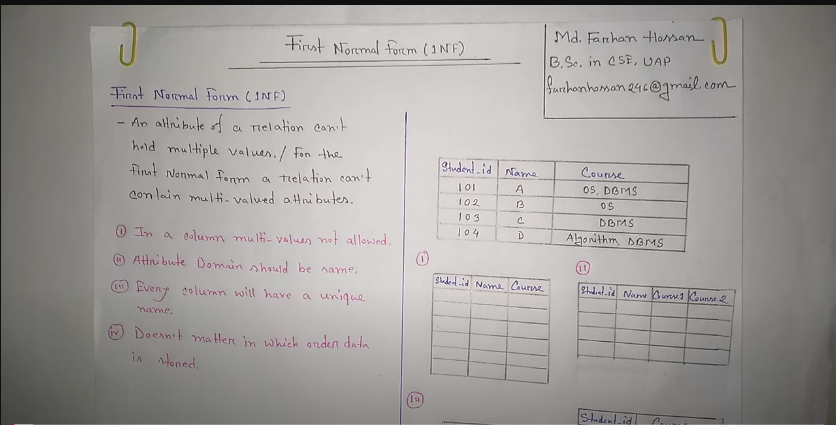 First Normal form (1NF)
Md. Farhan Hossan
B.Sc. in CSE, UAP
farhanhossan246@gmail.com
First Normal Form (1NF)
- An attribute of a relation can't
hold multiple values. / For the
first Normal form a relation can't
contain multi-valued attributes.
(i) In a column multi-values not allowed.
(ii) Attribute Domain should be name.
(iii) Every column will have a unique
name.
(iv) Doesn't matter in which order data
is stored.
Student_id Name Course
101 A OS, DBMS
102 B OS
103 C DBMS
104 D Algorithm, DBMS
(i)
Student_id Name Course
(ii)
Student_id Name Course1 Course 2
(iii)
Student_id Course